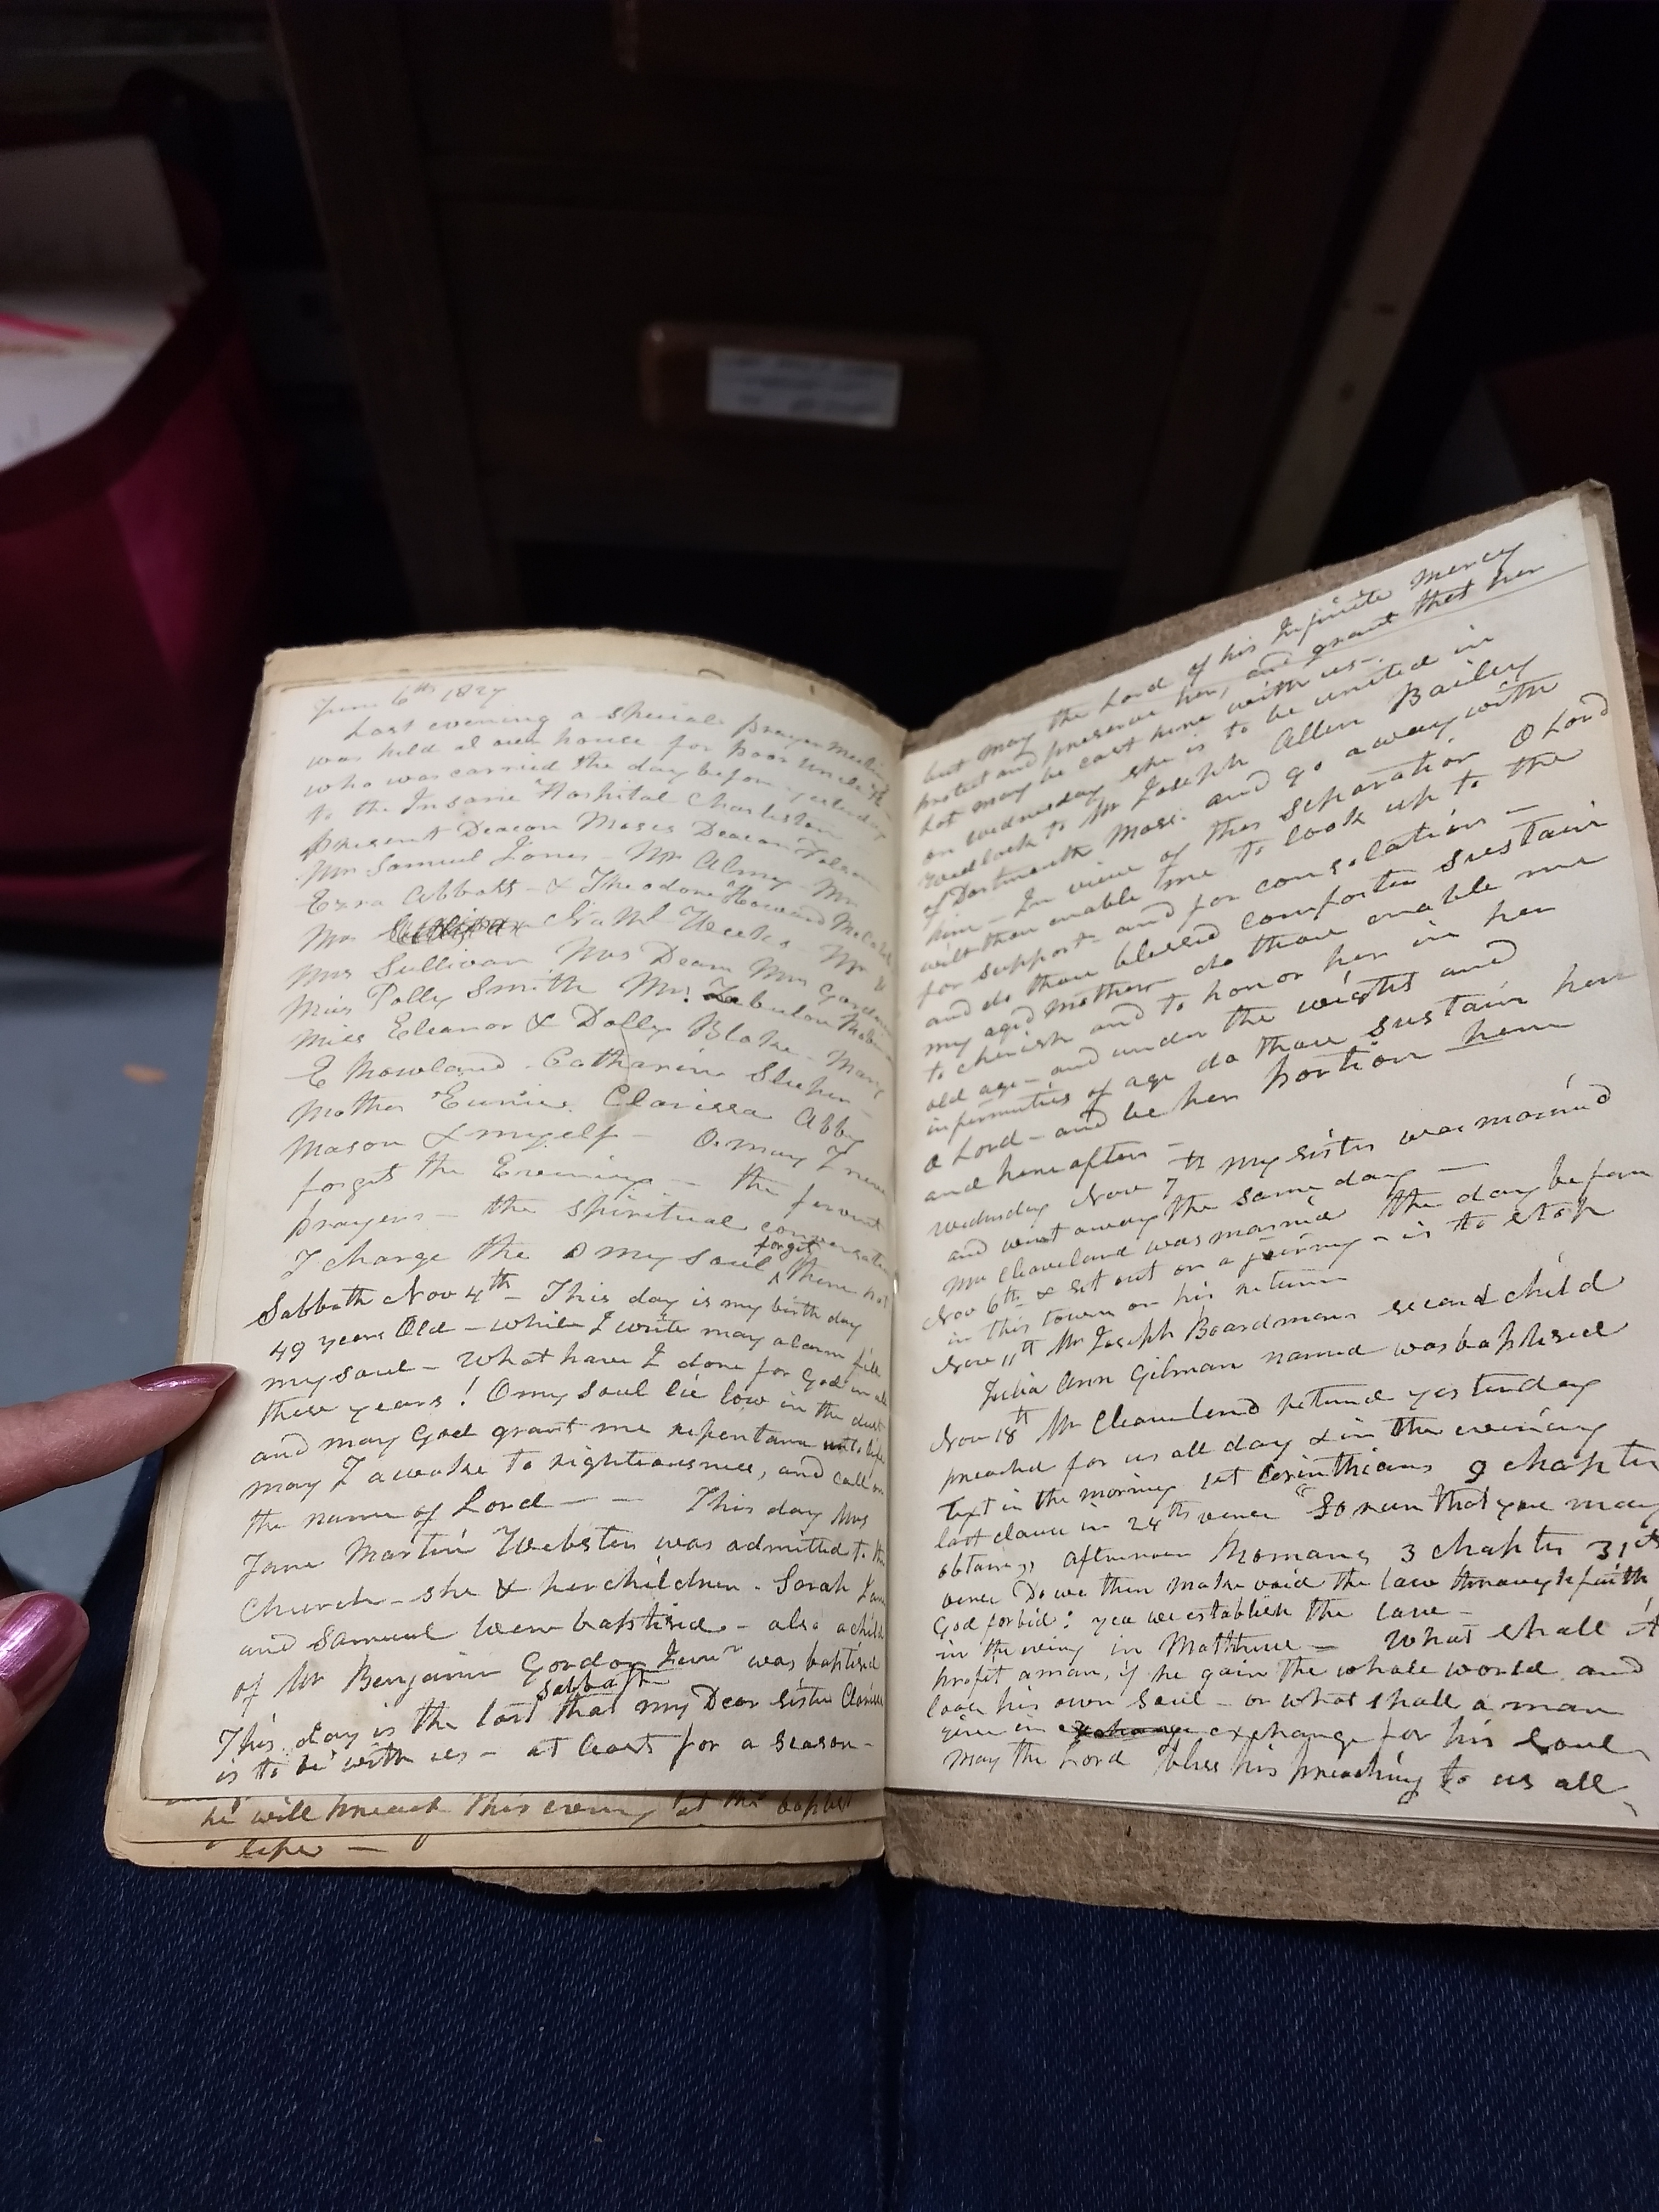 June 6th 1827
Last evening a special prayer meeting
was held at our house for poor uncle
who was carried the day before yesterday
to the Insane Hospital Charleston
present Deacon Moses Deacon Folsom
Mr Samuel Jones - Mr Almy - Mr
Ezra Abbott - & Theodore Howard
Mrs Nathl Weeks - Mr
Mrs Sullivan Mrs Deam Mrs Gordon
Miss Polly Smith Mrs. Zebulon
Miss Eleanor & Dolly Blake - Mary
E Rowland - Catharine Sleeper -
Mother Eunice Clarissa Abby
Mason & myself - O may I never
forget the Evening - the fervent
prayers - the spiritual conversation
I charge the O my soul forget them not
Sabbath Nov 4th - This day is my birth day
49 years Old - while I write may alarm fill
my soul - What have I done for God in all
these years! O my soul lie low in the dust
and may God grant me repentance unto life
may I awake to righteousness, and call on
the name of Lord - - This day Mrs
Jane Martin Webster was admitted to the
Church - she & her children - Sarah Jane
and Samuel were baptised - also a child
of Mr Benjamin Gordon Junr was baptised
This day is the last sabbath that my Dear sister Clarissa
is to be with us - at least for a season -
he will preach this evening at the baptist
life -
but may the Lord of his Infinite Mercy
protect and preserve her, and grant that her
lot may be cast here with us -
on wednesday she is to be united in
wedlock to Mr Joseph Allen Bailey
of Dartmouth Mass. and go away with
him - In view of this separation O Lord
wilt thou enable me to look up to the
for support - and for consolation -
and do thou blessed comforter sustain
my aged mother - do thou enable me
to cherish and to honor her in her
old age - and under the weights and
infirmities of age do thou sustain her
O Lord - and be her portion here
and hereafter -
Wednesday Nov 7th my sister was married
and went away the same day -
Mr Cleaveland was married the day before
Nov 6th & set out on a journey - is to stop
in this town on his return
Nov 11th Mr Joseph Boardmans second child
Julia Ann Gilman named was baptised
Nov 18th Mr Cleaveland returnd yesterday
preached for us all day & in the evening
Text in the morning 1st Corinthians 9 chapter
last clause in 24th verse "So run that ye may
obtain," afternoon Romans 3 chapter 31st
verse Do we then make void the law through faith
God forbid: yea we establish the law -
in the evening in Matthew - What shall it
profit a man, if he gain the whole world and
lose his own soul - or what shall a man
give in exchange exchange for his soul
May the Lord bless his preaching to us all